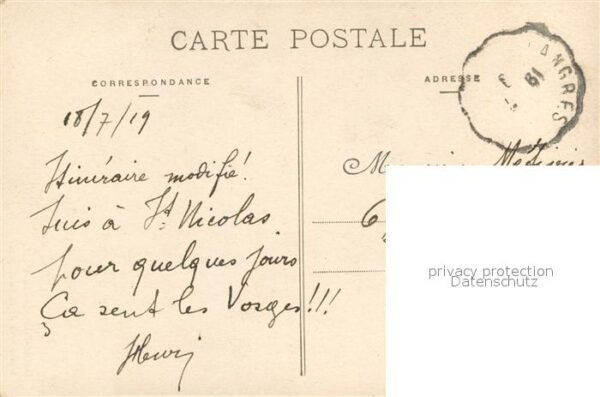 CARTE POSTALE
CORRESPONDANCE
ADRESSE
LANGRES
19
18/7/19
Itinéraire modifié!
Suis à St Nicolas
pour quelques jours
Ça sent les Vosges!!!
Henri
6
privacy protection
Datenschutz